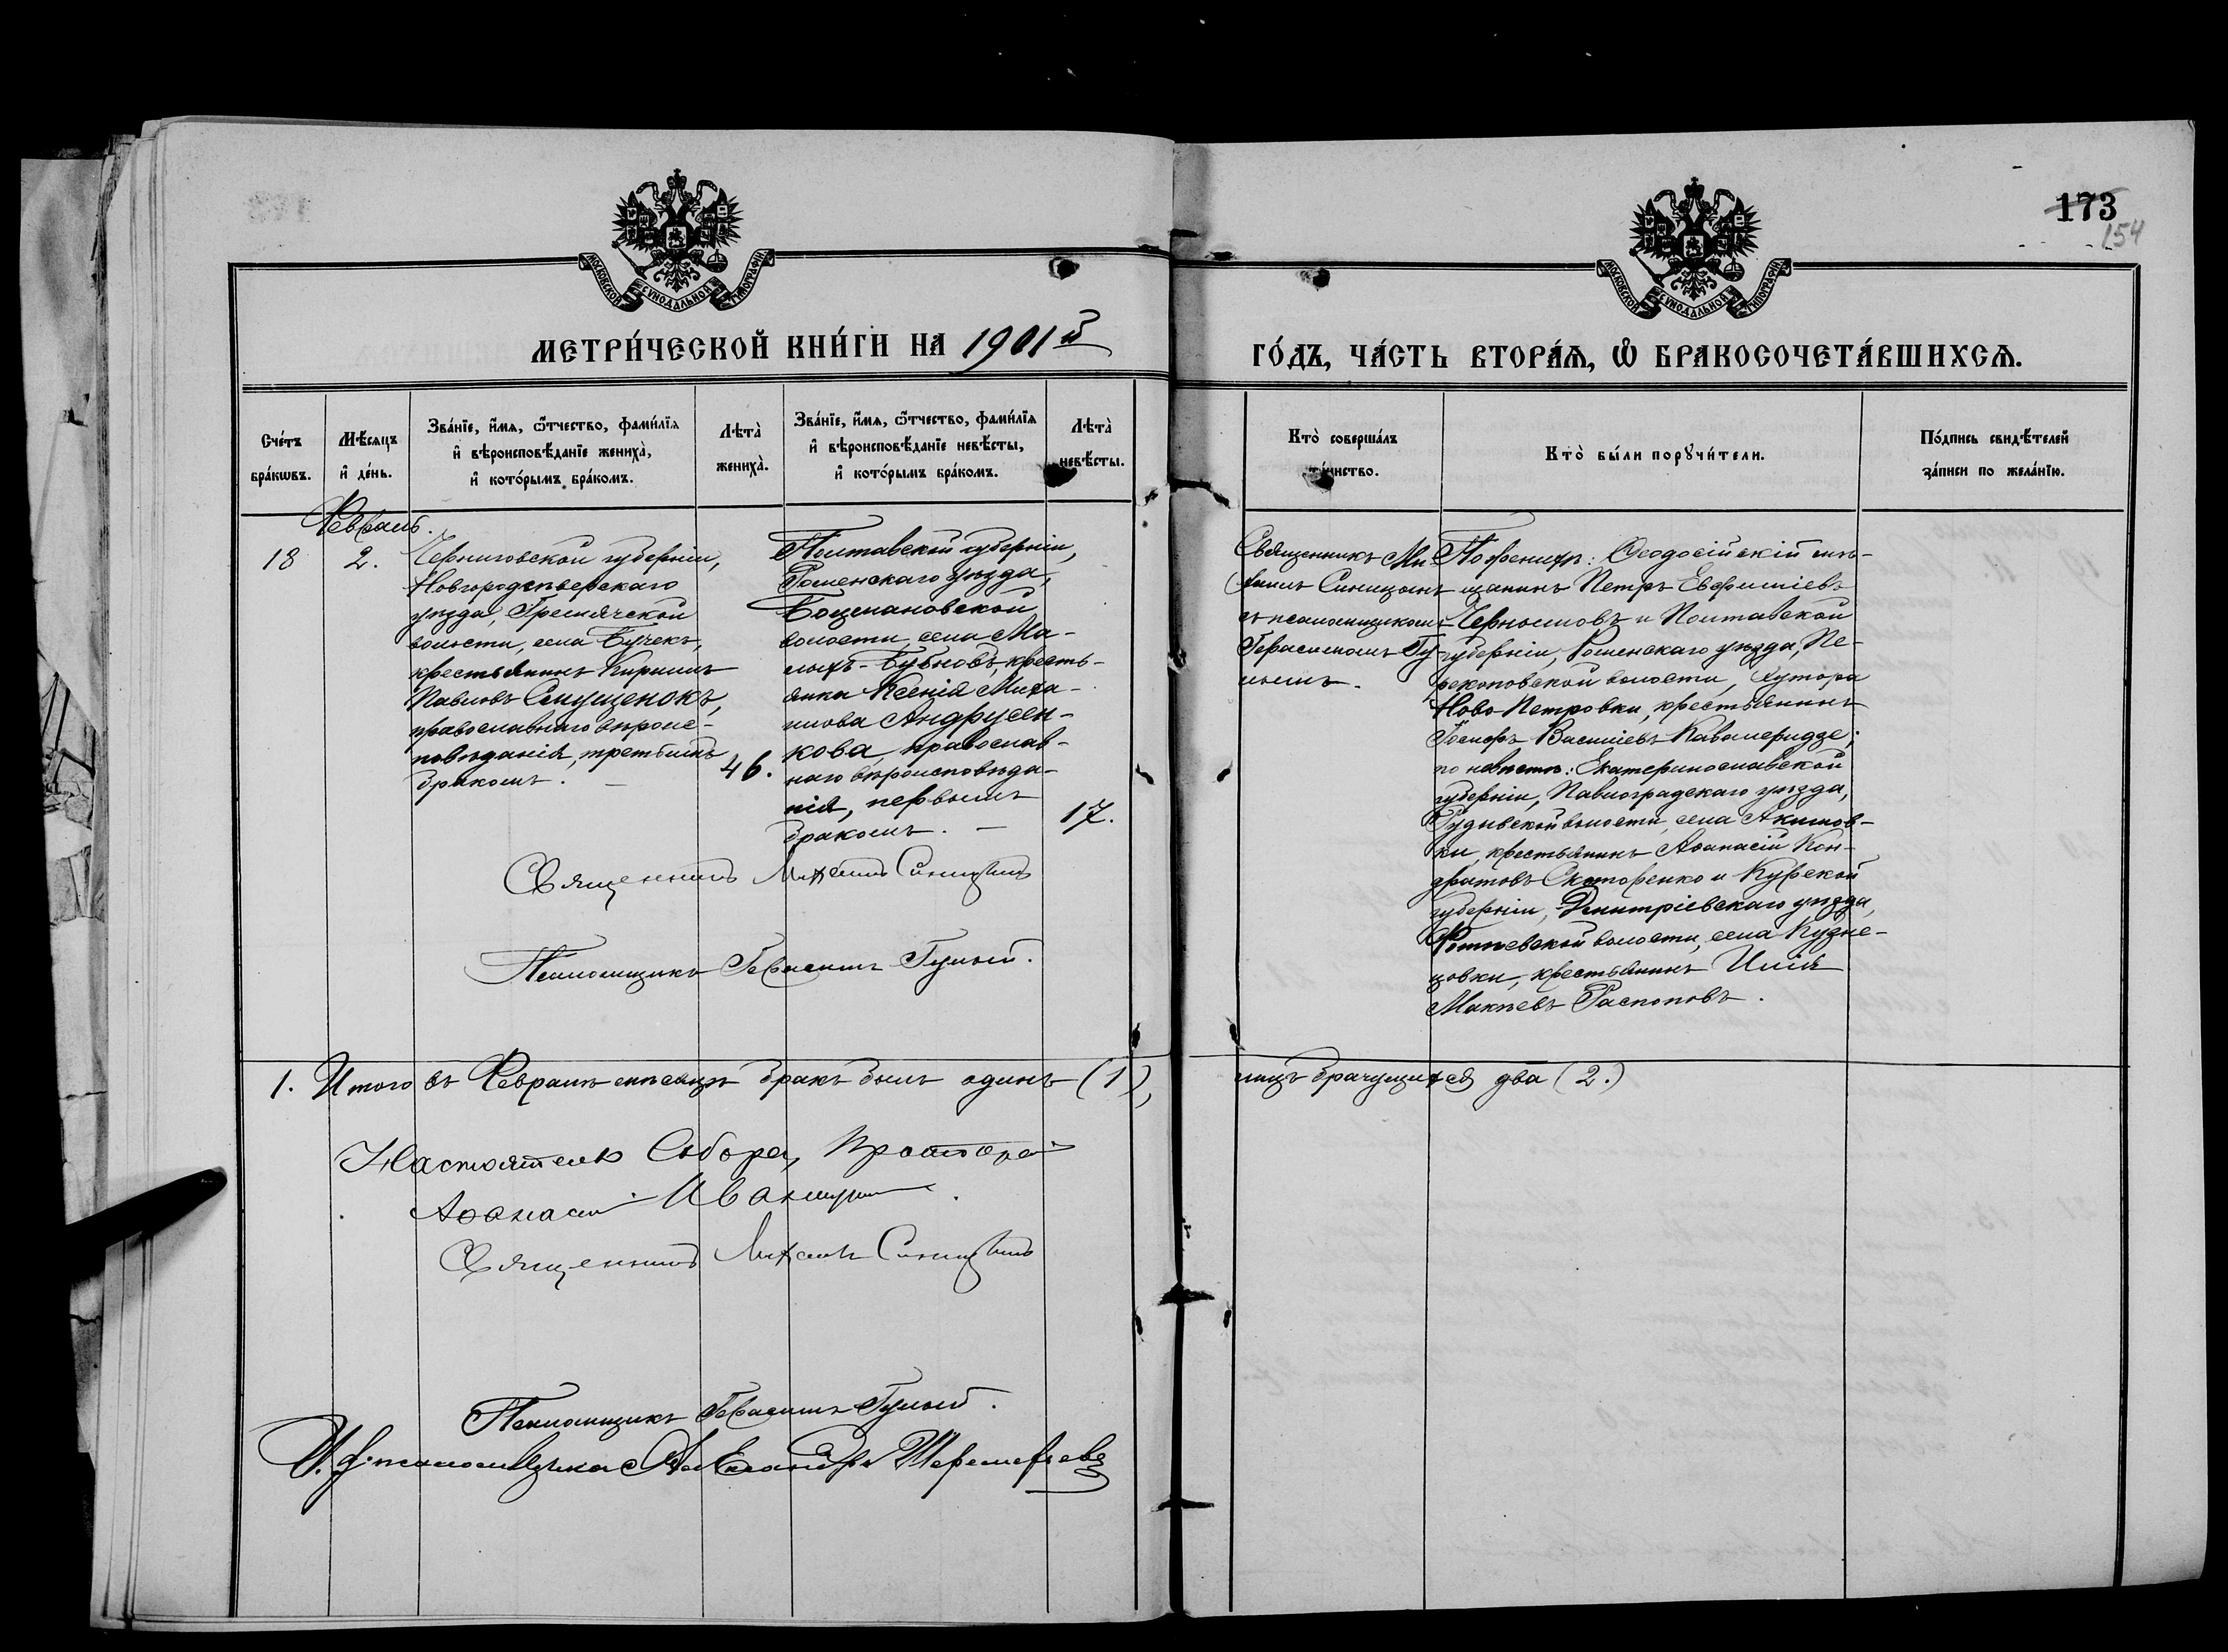 173
154
МОСКОВСКОЙ СѴНОДАЛЬНОЙ ТИПОГРАФІИ
МОСКОВСКОЙ СѴНОДАЛЬНОЙ ТИПОГРАФІИ
МЕТРИ́ЧЕСКОЙ КНИ́ГИ НА 1901й
ГО́ДЪ, ЧА́СТЬ ВТОРА́Я, Ѽ БРАКОСОЧЕТА́ВШИХСЯ.
Сче́тъ
бра́кѡвъ.
Мѣ́сяцъ
и҆ де́нь.
Зва́нїе, и҆́мя, ѻ҆́тчество, фами́лїя
и҆ вѣроисповѣ́данїе жениха̀,
и҆ кото́рымъ бра́комъ.
Лѣта̀
жениха̀.
Зва́нїе, и҆́мя, ѻ҆́тчество, фами́лїя
и҆ вѣроисповѣ́данїе невѣ́сты,
и҆ кото́рымъ бра́комъ.
Лѣта̀
невѣ́сты.
Кто̀ соверша́лъ
та́инство.
Кто̀ бы́ли порꙋчи́тели.
По́дпись свидѣ́телей
за́писи по жела́нїю.
Февраль.
18
2.
Черниговской губерніи,
Новгородсѣверскаго
уѣзда, Гремячской
волости, села Бучекъ,
крестьянинъ Кириллъ
Павловъ Слущенокъ,
православнаго вѣроис-
повѣданія, третьимъ
бракомъ. —
46.
Полтавской губерніи,
Роменскаго уѣзда,
Боцмановской
волости, села Ма-
лыхъ-Бубновъ, кресть-
янка Ксенія Миха-
илова Андрусен-
кова, православ-
наго вѣроисповѣда-
нія, первымъ
бракомъ. —
17.
Священникъ Ми-
хаилъ Синицынъ
съ псаломщикомъ
Герасимомъ Гу-
лымъ.
По женихѣ: Ѳеодосійскій мѣ-
щанинъ Петръ Евфиміевъ
Черномовъ и Полтавской
губерніи, Роменскаго уѣзда, Пе-
рекоповской волости, хутора
Ново-Петровки, крестьянинъ
Іосифъ Василіевъ Кавалеридзе;
по невѣстѣ: Екатеринославской
губерніи, Павлоградскаго уѣзда,
волости, села Акимов-
ки, крестьянинъ Аѳанасій Кон-
дратовъ Скоторенко и Курской
губерніи, Дмитріевскаго уѣзда,
волости, села Кузне-
цовки, крестьянинъ Илія
Макѣевъ Распоповъ.
Священникъ Михаилъ Синицынъ
Псаломщикъ Герасимъ Гулый.
1. Итого въ Февралѣ мѣсяцѣ бракъ былъ одинъ (1),
лицъ брачущихся два (2.)
Настоятель Собора, Протоіерей
Аѳанасій
Священникъ Михаилъ Синицынъ
Псаломщикъ Герасимъ Гулый.
И. д. псаломщика Александръ Шереметьевъ